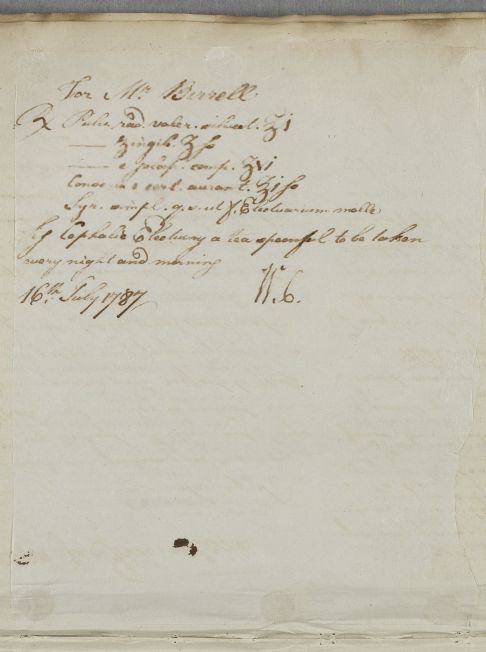 For Mr. Birrell
℞ Pulv. rad. valer. silvest. ʒi
—— Zingib. ʒſs
—— e comp. ʒvi
Conserv. cort. aurant. ʒiſs
Syr. simpl. q. s. ut f. Electuarium molle
Sg Cephalic Electuary a tea spoonful to be taken
every night and morning
16th July 1787 W. C.